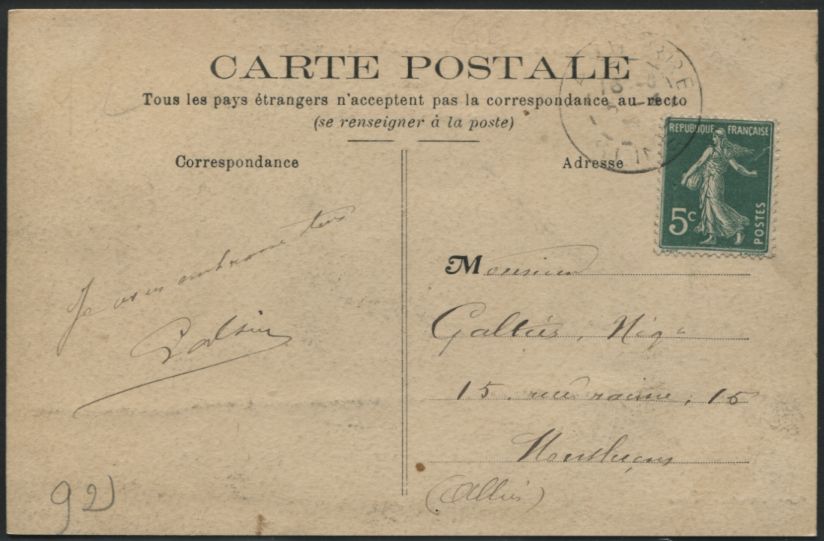 CARTE POSTALE
Tous les pays étrangers n'acceptent pas la correspondance au recto
(se renseigner à la poste)
Correspondance
Adresse
REPUBLIQUE FRANÇAISE
5c
POSTES
Je vous embrasse tous
Monsieur
Galtier, Nég
15, rue racine, 15
Montluçon
(Allier)
92